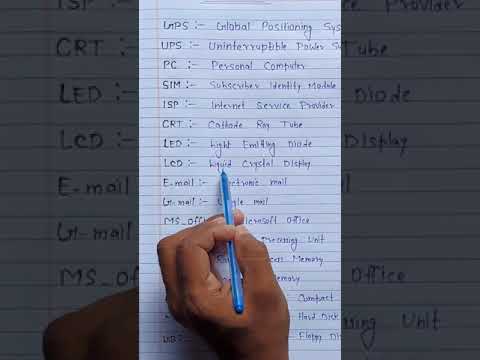 GPS :- Global Positioning Sys
UPS :- Uninterruptible Power S
PC :- Personal Computer
SIM :- Subscriber Identity Module
ISP :- Internet Service Provider
CRT :- Cathode Ray Tube
LED :- Light Emitting Diode
LCD :- Liquid Crystal Display
E-mail :- Electronic mail
G-mail :- Google mail
MS_Off Microsoft Office
Processing Unit
Memory
Memory
Compact
Hard Disk
Floppy Dis